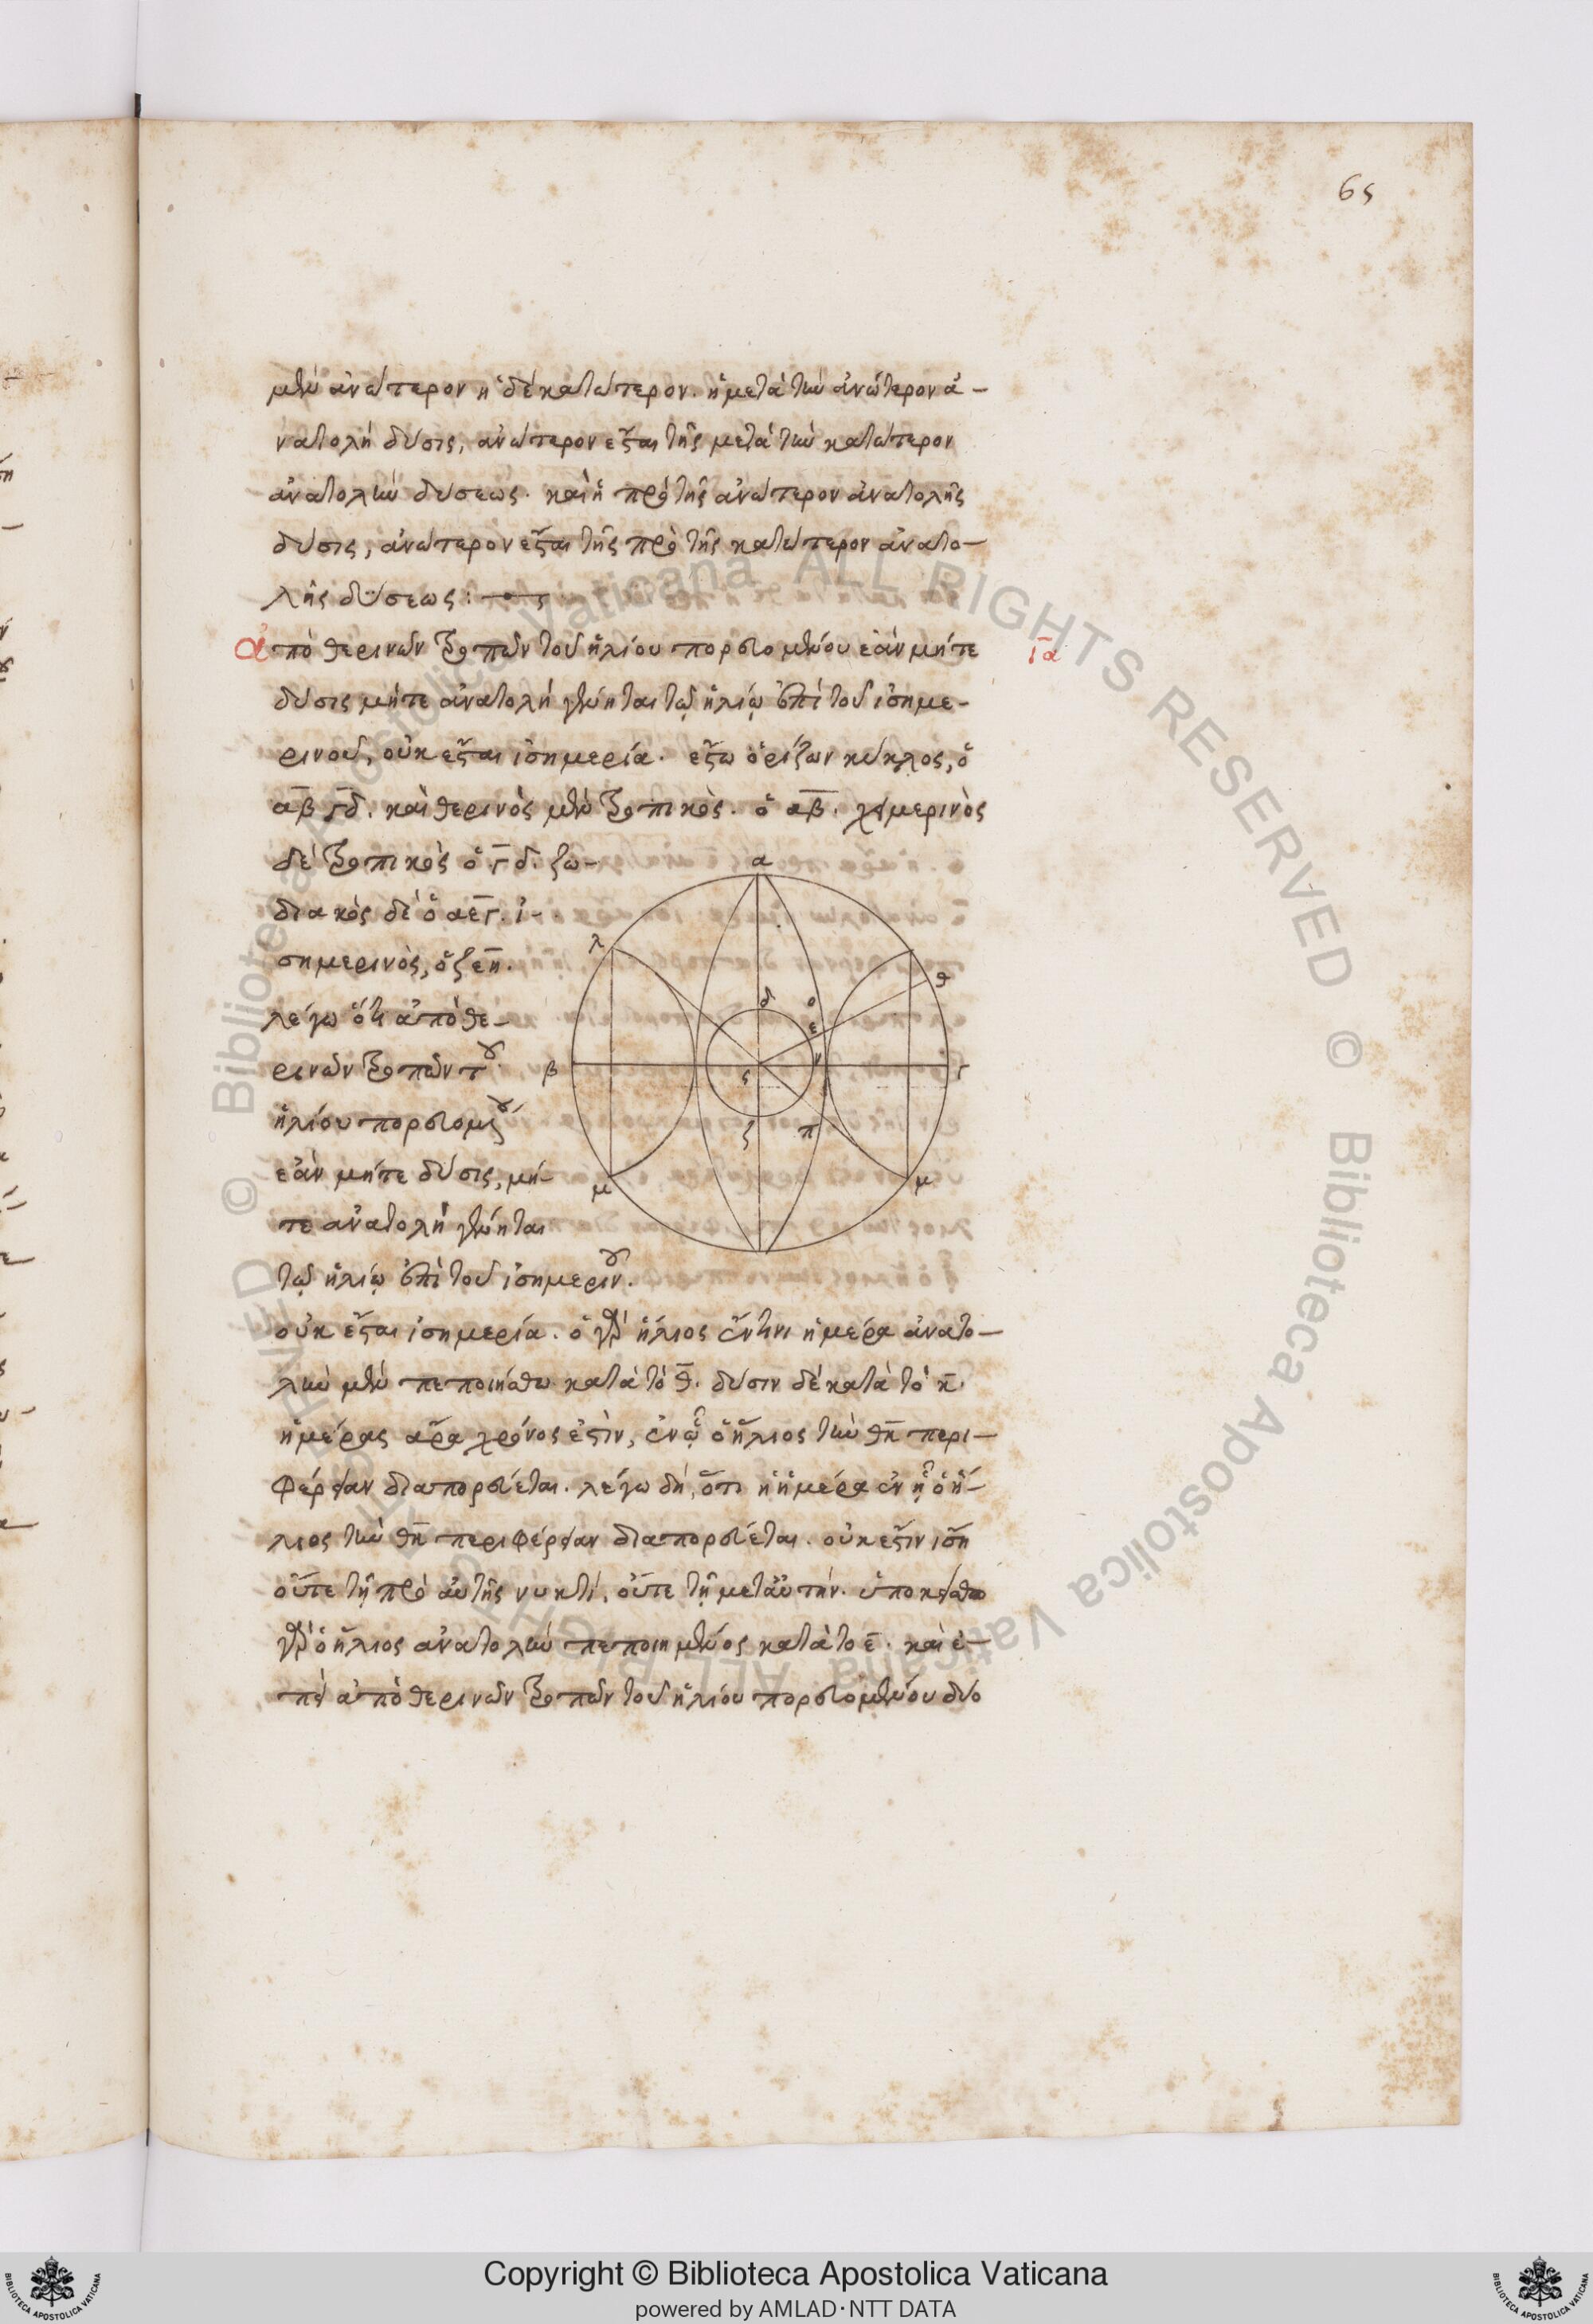 65
μὲν ἀνώτερον ἡ δὲ κατώτερον. ἡ μετὰ τὴν ἀνώτερον ἀ-
νατολὴ δύσις, ἀνώτερον ἔσται τῆς μετὰ τὴν κατώτερον
ἀνατολὴν δύσεως. καὶ ἡ πρὸ τῆς ἀνώτερον ἀνατολῆς
δύσις, ἀνώτερον ἔσται τῆς πρὸ τῆς κατώτερον ἀνατο-
λῆς δύσεως :
ἀπὸ θερινῶν τροπῶν τοῦ ἡλίου πορευομένου ἐὰν μήτε
ια
δύσις μήτε ἀνατολὴ γένηται τῷ ἡλίῳ ἐπὶ τοῦ ἰσημε-
ρινοῦ, οὐκ ἔσται ἰσημερία. ἔστω ὁρίζων κύκλος, ὁ
αβγδ. καὶ θερινὸς μὲν τροπικὸς. ὁ αβ. χειμερινὸς
δὲ τροπικὸς ὁ γδ. ζω-
διακὸς δὲ ὁ αεγ. ἰ-
σημερινὸς, ὁ ζεη.
λέγω ὅτι ἀπὸ θε-
ρινῶν τροπῶν τοῦ
ἡλίου πορευομένου
ἐὰν μήτε δύσις, μή-
τε ἀνατολὴ γένηται
τῷ ἡλίῳ ἐπὶ τοῦ ἰσημερινοῦ.
α
λ
θ
δ
ο
ε
β
ς
γ
ζ
π
μ
μ
οὐκ ἔσται ἰσημερία. ὁ γὰρ ἥλιος ἔν τινι ἡμέρα ἀνατο-
λὴν μὲν πεποιήσθω κατὰ τὸ θ. δύσιν δὲ κατὰ τὸ κ.
ἡμέρας ἄρα χρόνος ἐστὶν, ἐν ᾧ ὁ ἥλιος τὴν θκ περι-
φέρειαν διαπορεύεται. λέγω δὴ, ὅτι ἡ ἡμέρα ἐν ᾗ ὁ ἥ-
λιος τὴν θκ περιφέρειαν διαπορεύεται. οὐκ ἔστιν ἴση
οὔτε τῇ πρὸ αὐτῆς νυκτί, οὔτε τῇ μετ' αὐτήν. ὑποκείσθω
γὰρ ὁ ἥλιος ἀνατολὴν πεποιημένος κατὰ το ε. καὶ ἐ-
πεὶ ἀπὸ θερινῶν τροπῶν τοῦ ἡλίου πορευομένου δύο
Copyright © Biblioteca Apostolica Vaticana
powered by AMLAD·NTT DATA